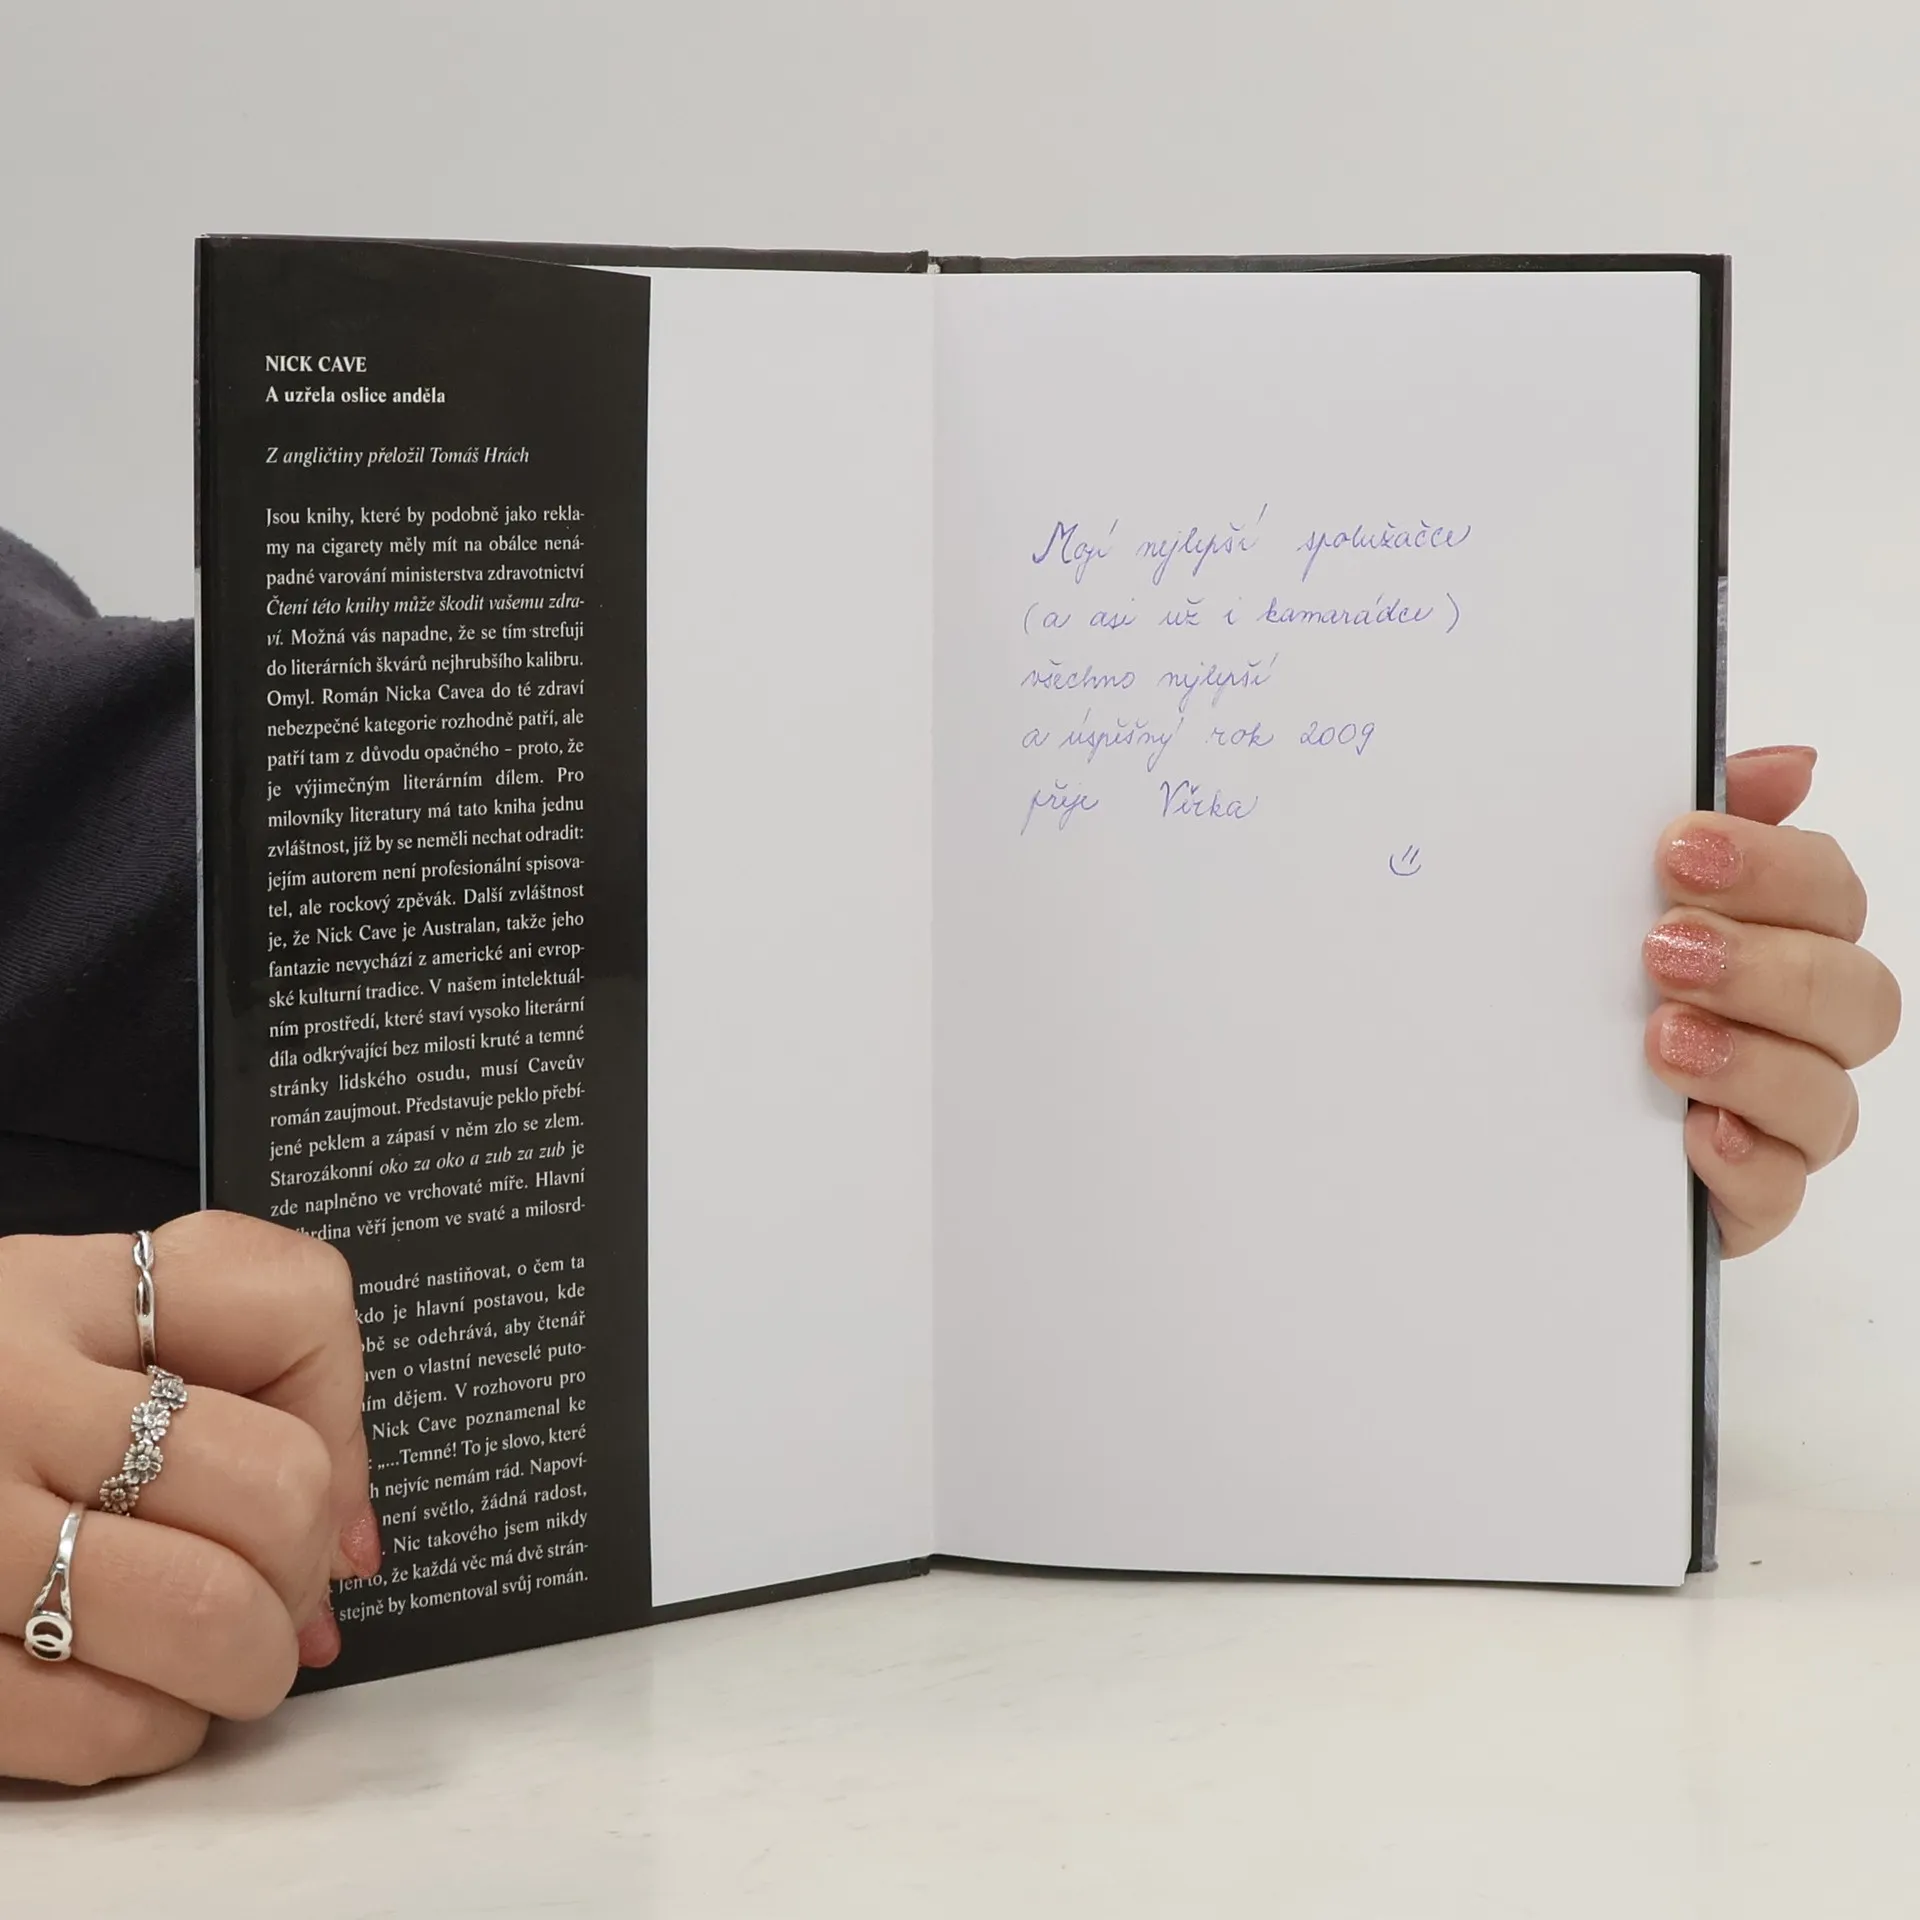 NICK CAVE
A uzřela oslice anděla
Z angličtiny přeložil Tomáš Hrách
Jsou knihy, které by podobně jako rekla-
my na cigarety měly mít na obálce nená-
padné varování ministerstva zdravotnictví
Čtení této knihy může škodit vašemu zdra-
ví. Možná vás napadne, že se tím strefuji
do literárních škvárů nejhrubšího kalibru.
Omyl. Román Nicka Cavea do té zdraví
nebezpečné kategorie rozhodně patří, ale
patří tam z důvodu opačného – proto, že
je výjimečným literárním dílem. Pro
milovníky literatury má tato kniha jednu
zvláštnost, jíž by se neměli nechat odradit:
jejím autorem není profesionální spisova-
tel, ale rockový zpěvák. Další zvláštnost
je, že Nick Cave je Australan, takže jeho
fantazie nevychází z americké ani evrop-
ské kulturní tradice. V našem intelektuál-
ním prostředí, které staví vysoko literární
díla odkrývající bez milosti kruté a temné
stránky lidského osudu, musí Caveův
román zaujmout. Představuje peklo přebí-
jené peklem a zápasí v něm zlo se zlem.
Starozákonní oko za oko a zub za zub je
zde naplněno ve vrchovaté míře. Hlavní
hrdina věří jenom ve svaté a milosrd-
moudré nastiňovat, o čem ta
kdo je hlavní postavou, kde
obě se odehrává, aby čtenář
aven o vlastní neveselé puto-
ním dějem. V rozhovoru pro
Nick Cave poznamenal ke
: „...Temné! To je slovo, které
h nejvíc nemám rád. Napoví-
není světlo, žádná radost,
. Nic takového jsem nikdy
Jen to, že každá věc má dvě strán-
stejně by komentoval svůj román.
Mojí nejlepší spolužačce
(a asi už i kamarádce)
všechno nejlepší
a úspěšný rok 2009
přeje Věrka